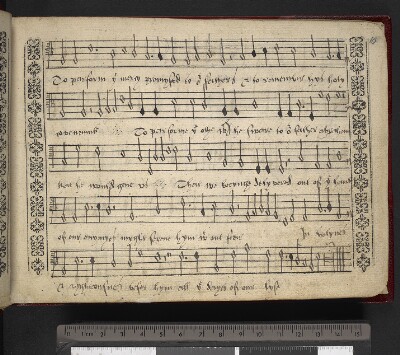 To perform yͤ mercy promysed to oͬ fathers & to remember hys holy
covenaunt To perform yͤ othe he sware to oͬ father abraham
that he would geve us That we beyng delyvered out of yͤ hand
of our enemyes myght serve hym wͭ out fere In holynes
& ryghteousnes before hym all yͤ dayes of our lyfe